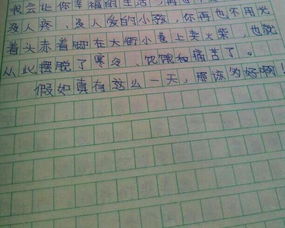 我会让你幸福的生活,再也
没人疼、没人爱的小孩,你再也不用光
着头赤着脚在大街小巷上卖火柴,也就
从此摆脱了寒冷、饥饿和痛苦了。
假如真有这么一天,应该多好啊!